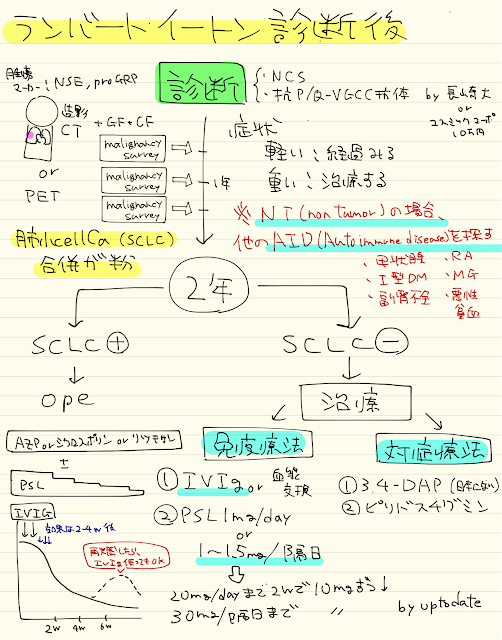 ランバート・イートン診断後
腫瘍
マーカー:NSE,proGRP
造影
CT
+GF+CF
or
PET
診断
・NCS
・抗P/Q-VGCC抗体
by 長崎大
or
コスミックコーポ
10万円
症状
軽い:経過みる
重い:治療する
malignancy
survey
malignancy
survey
malignancy
survey
1年
※NT(non tumor)の場合、
他のAID(Autoimmune disease)を探す
・甲状腺
・RA
・I型DM
・MG
・副腎不全
・悪性
貧血
肺licellCa(SCLC)
合併が
2年
SCLC⊕
ope
SCLC⊖
治療
免疫療法
対症療法
①IVIg or 血漿
交換
②PSL1mg/day
or
1〜1.5mg/隔日
20mg/dayまで2wで10mgずつ↓
30mg/隔日まで 〃
by uptodate
①3.4-DAP(日本にない)
②ピリドスチグミン
AZP or シクロスポリン or リツキサン
±
PSL
IVIG
効果は2-4w後
再増悪したら
IVIg使ってもOK
2w
4w
6w